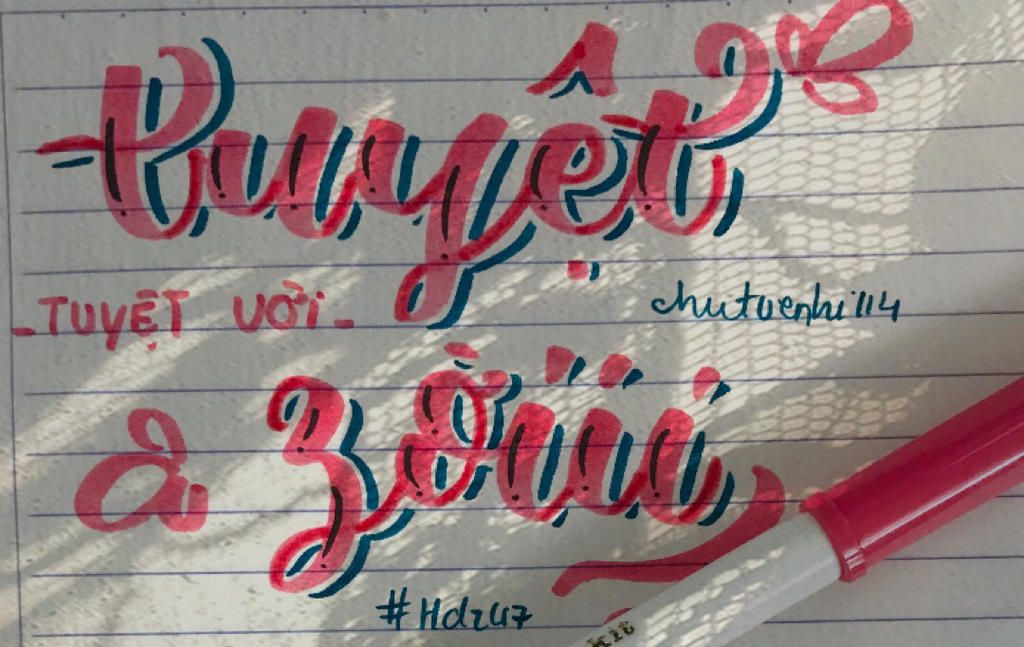 tuyệt
-TUYỆT VỜI-
chutuenhi114
zờiii
#Hdz47
kit